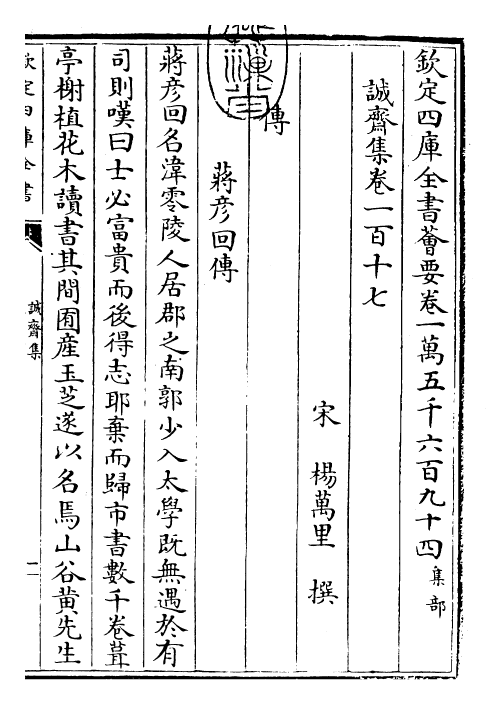 欽定四庫全書薈要卷一萬五千六百九十四 集部
誠齋集卷一百十七
宋 楊萬里 撰
傳
蔣彦回傳
蔣彦回名湋零陵人居郡之南郭少入太學既無遇於有
司則嘆曰士必富貴而後得志耶棄而歸市書數千卷葺
亭榭植花木讀書其間囿産玉芝遂以名焉山谷黄先生
欽定四庫全書
誠齋集
二